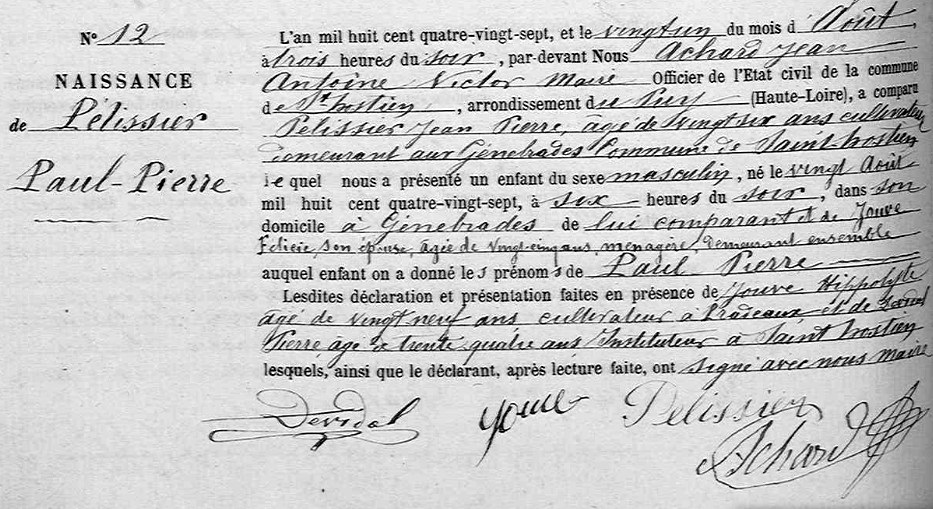 N° 12
NAISSANCE
de Pélissier
Paul-Pierre
L'an mil huit cent quatre-vingt-sept, et le vingt un du mois d'Août
à trois heures du soir, par-devant Nous Achard Jean
Antoine Victor Maire Officier de l'Etat civil de la commune
de St hostien, arrondissement du Puy (Haute-Loire), a comparu
Pelissier Jean Pierre, âgé de vingt six ans cultivateur
demeurant aux Génebrades Commune de Saint-hostien
lequel nous a présenté un enfant du sexe masculin, né le vingt Août
mil huit cent quatre-vingt-sept, à six heures du soir, dans son
domicile à Génebrades de lui comparant et de Jouve
Félicie, son épouse, âgée de vingt-cinq ans, menagère, demeurant ensemble
auquel enfant on a donné les prénoms de Paul Pierre
Lesdites déclaration et présentation faites en présence de Jouve Hippolyte
âgé de vingt neuf ans cultivateur à Pradeaux et de
Pierre, âgé de trente quatre ans Instituteur à Saint hostien
lesquels, ainsi que le déclarant, après lecture faite, ont signé avec nous maire
Jouve Pelissier
Achard